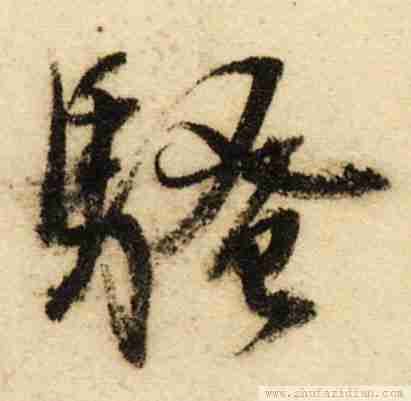 騷
www.shufazidian.com